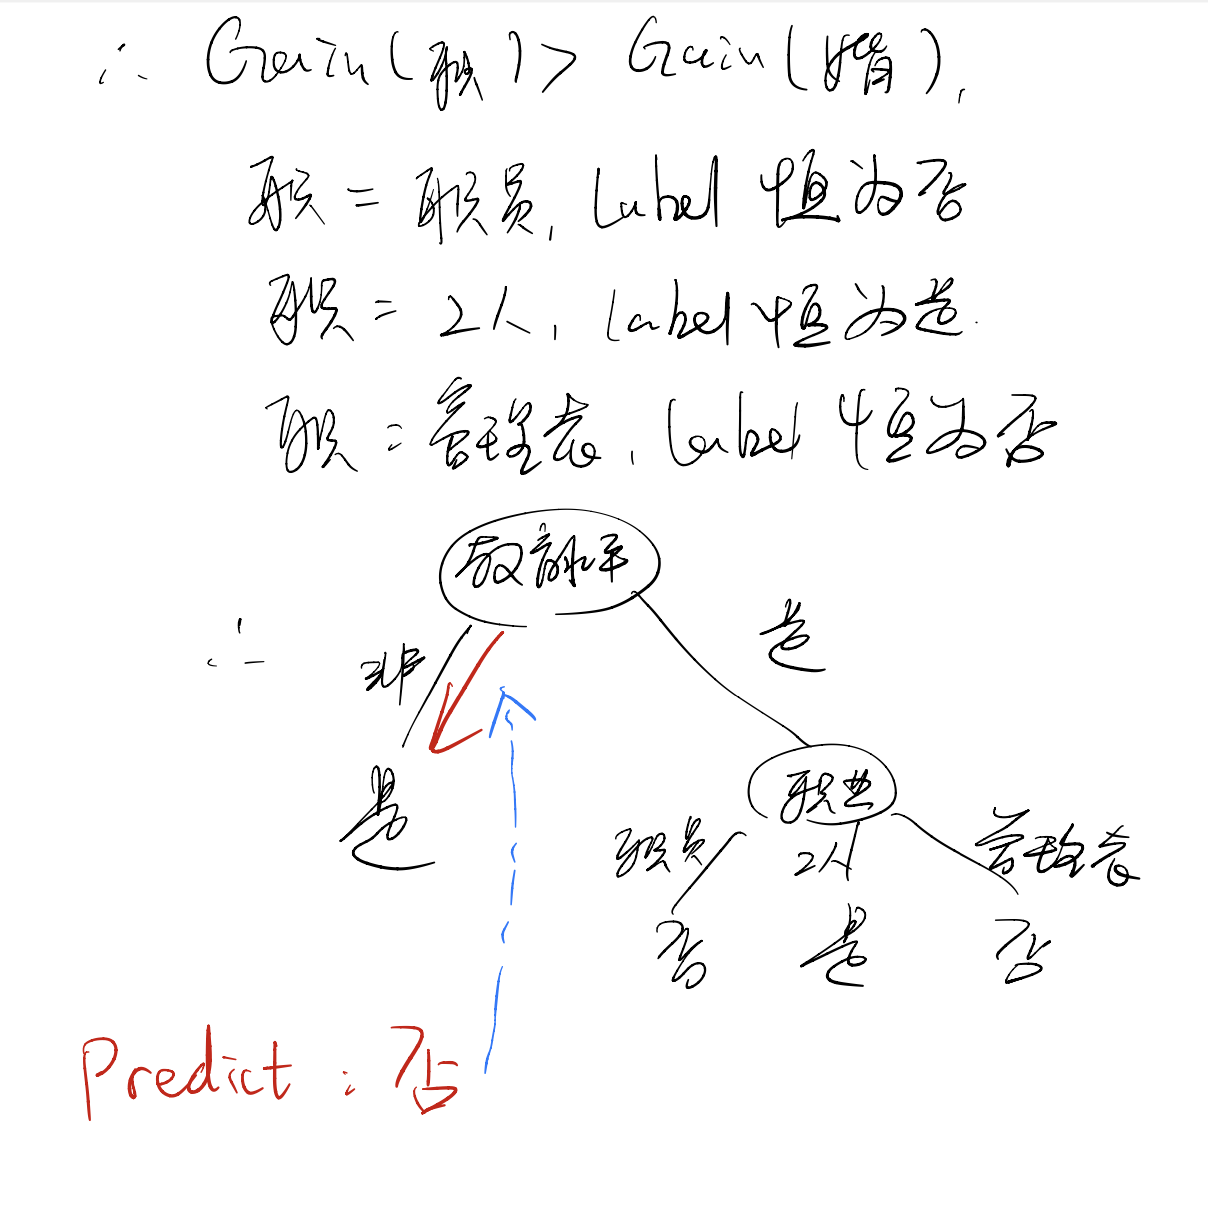 ∴ Gain(职) > Gain(婚),
职 = 职员, Label 恒为否
职 = 工人, label 恒为是.
职 = 管理者, label 恒为否
教育水平
∴ 非 是
是 职业
职员 工人 管理者
否 是 否
Predict : 否